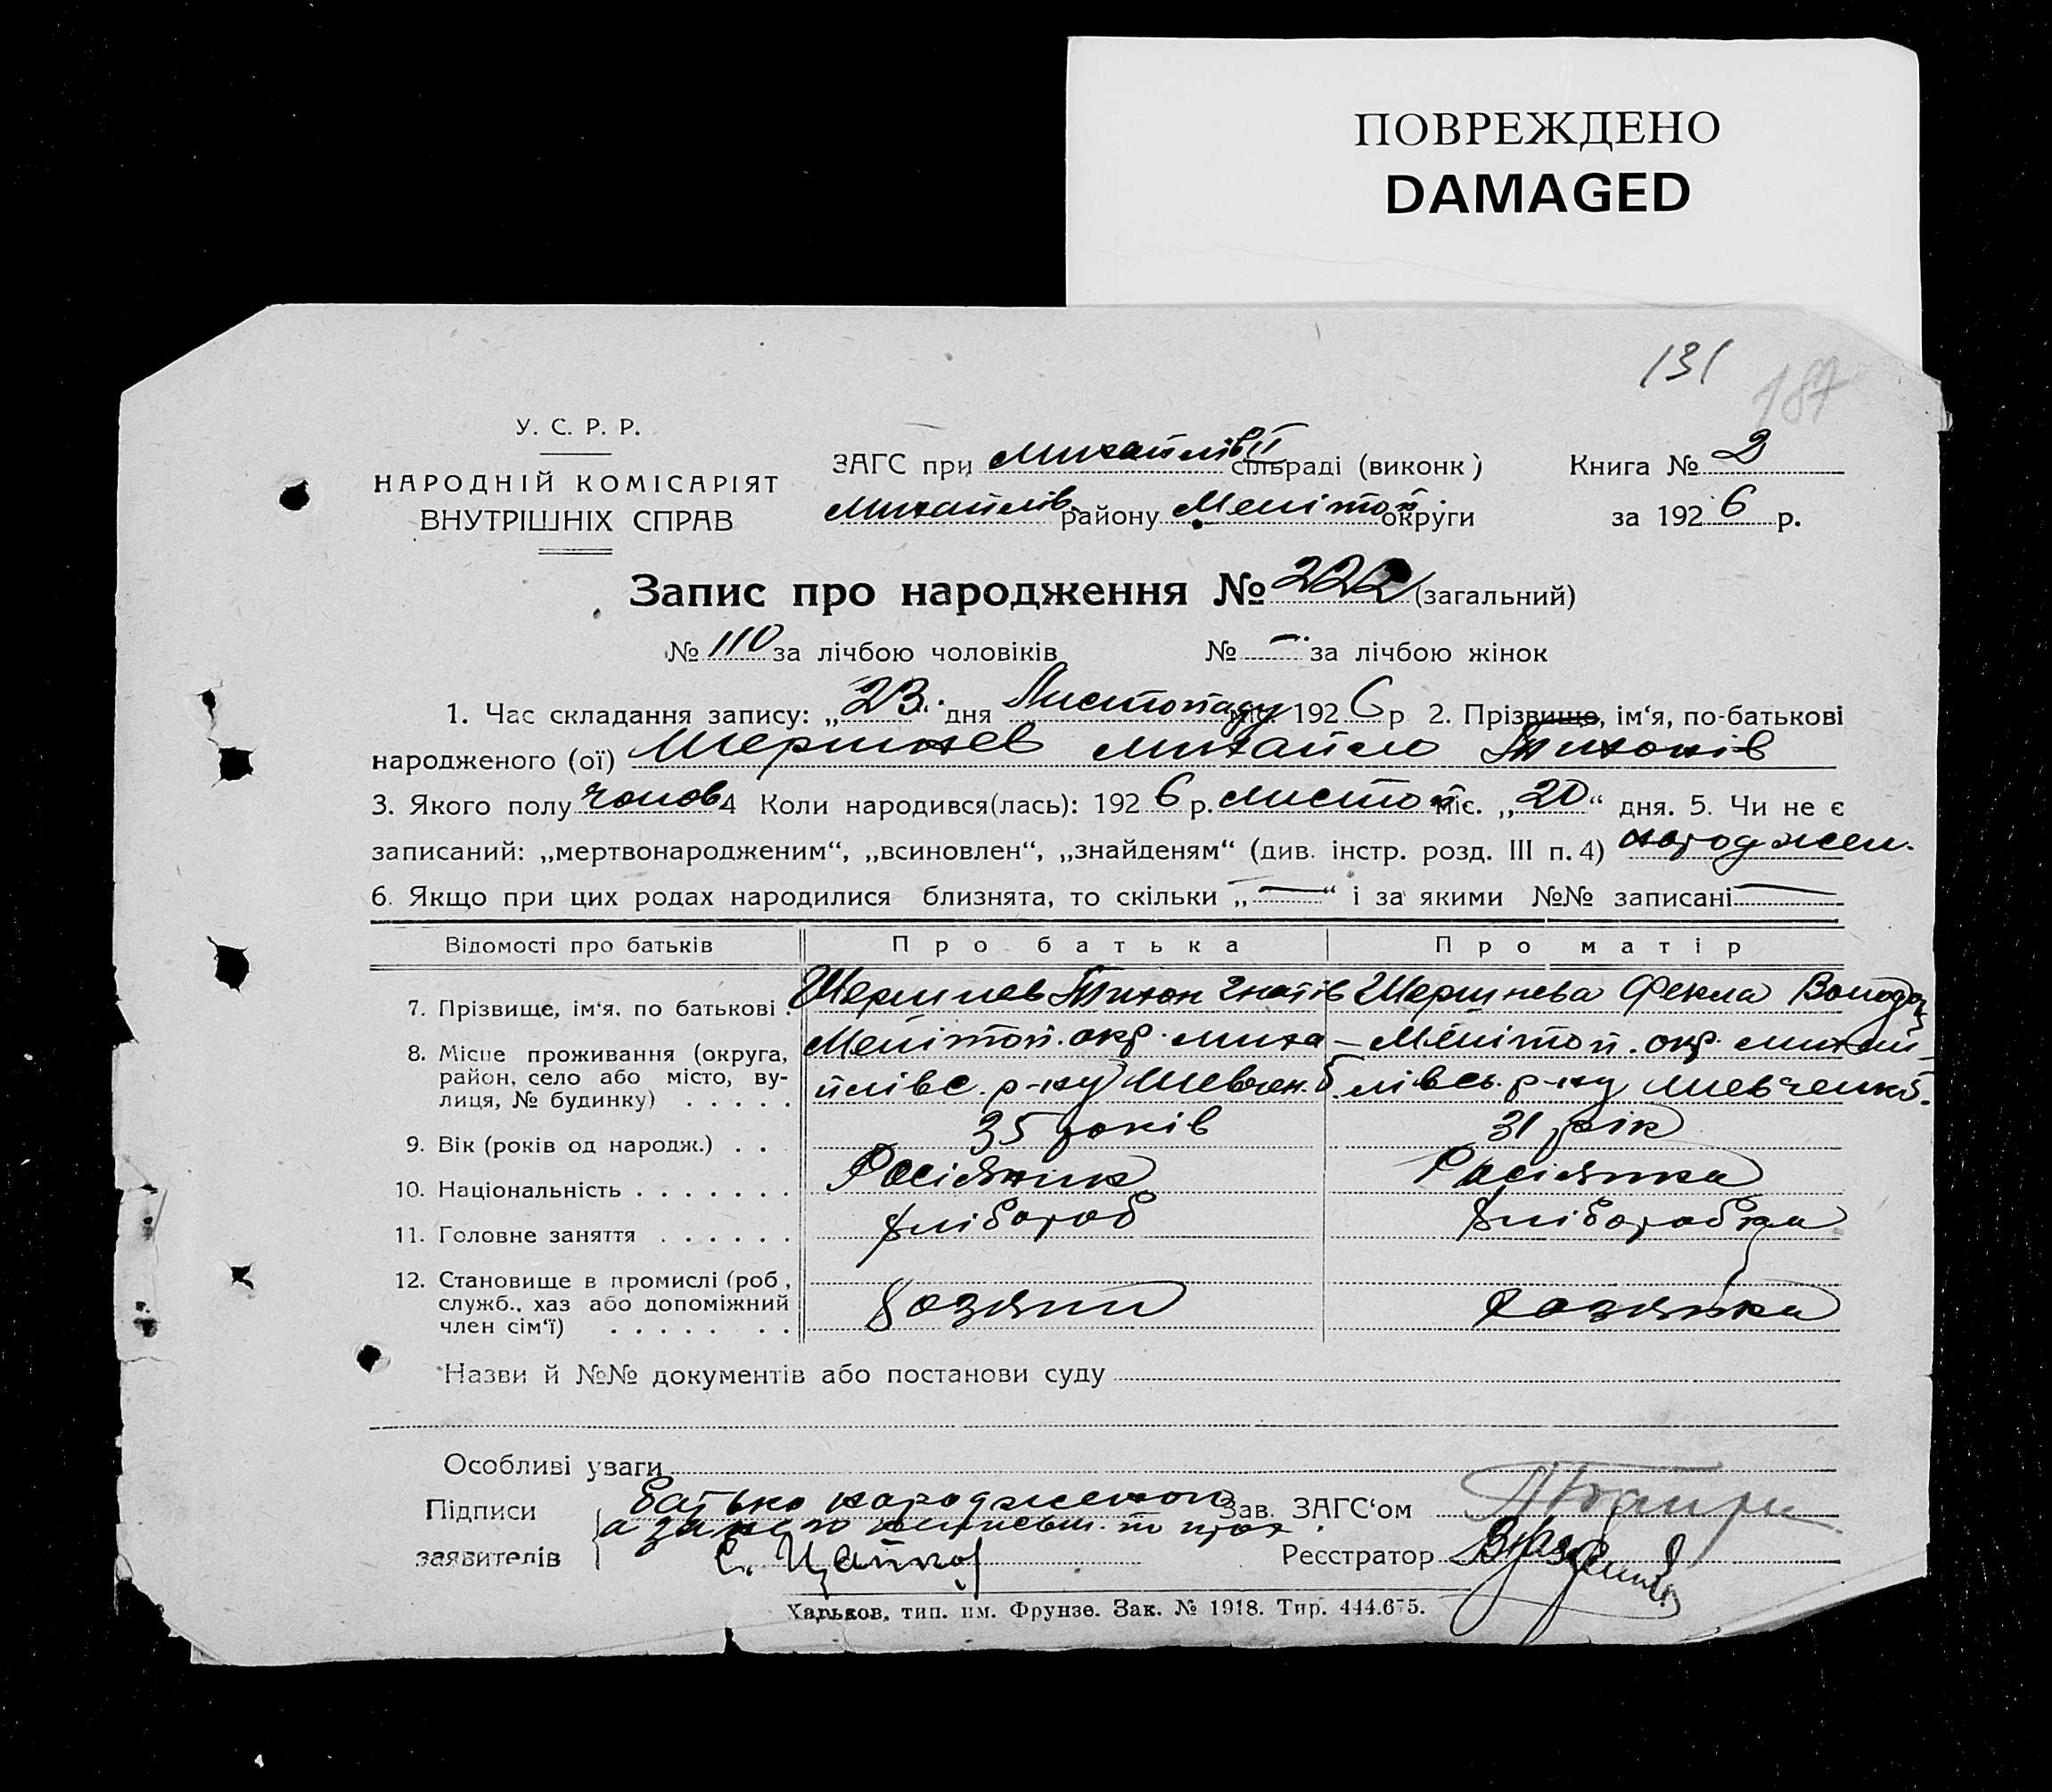 ПОВРЕЖДЕНО
DAMAGED
131
187
У. С. Р. Р.
НАРОДНІЙ КОМІСАРІЯТ
ВНУТРІШНІХ СПРАВ
ЗАГС при Михайлів II сільраді (виконк)
Книга № 2
Михайлів району Мелітоп округи
за 1926 р.
Запис про народження № 222 (загальний)
№ 110 за лічбою чоловіків № — за лічбою жінок
1. Час складання запису: „23" дня Листопаду міс. 1926 р 2. Прізвище, ім'я, по-батькові
народженого (ої) Шершнев Михайло Тихонів
3. Якого полу чолов 4 Коли народився(лась): 1926 р. листоп міс. „20" дня. 5. Чи не є
записаний: „мертвонародженим", „всиновлен", „знайденям" (див. інстр. розд. III п. 4) народжен.
6. Якщо при цих родах народилися близнята, то скільки „—" і за якими №№ записані —
Відомості про батьків
Про батька
Про матір
7. Прізвище, ім'я, по батькові . Шершнев Тихон Гнатів Шершнева Фекла Волод
8. Місце проживання (округа, район, село або місто, вулиця, № будинку) . . . . .
Мелітоп. окр. Миха-
йлівс. р-ну Шевченк.
Мелітоп. окр. Михай-
лівсь. р-ну Шевченко.
9. Вік (років од народж.) . . 35 років 31 рік
10. Національність . . . . . . . Росіянин Росіянка
11. Головне заняття . . . . . . хлібороб хліборобка
12. Становище в промислі (роб, служб., хаз або допоміжний член сім'ї) . . . . . . . .
хозяин
хозяйка
Назви й №№ документів або постанови суду
Особливі уваги
Підписи
заявителів
батько народженого
а за него неписьм. по прох.
С. Цапко
Зав. ЗАГС'ом
Реєстратор
Харьков, тип. им. Фрунзе. Зак. № 1918. Тир. 444.675.